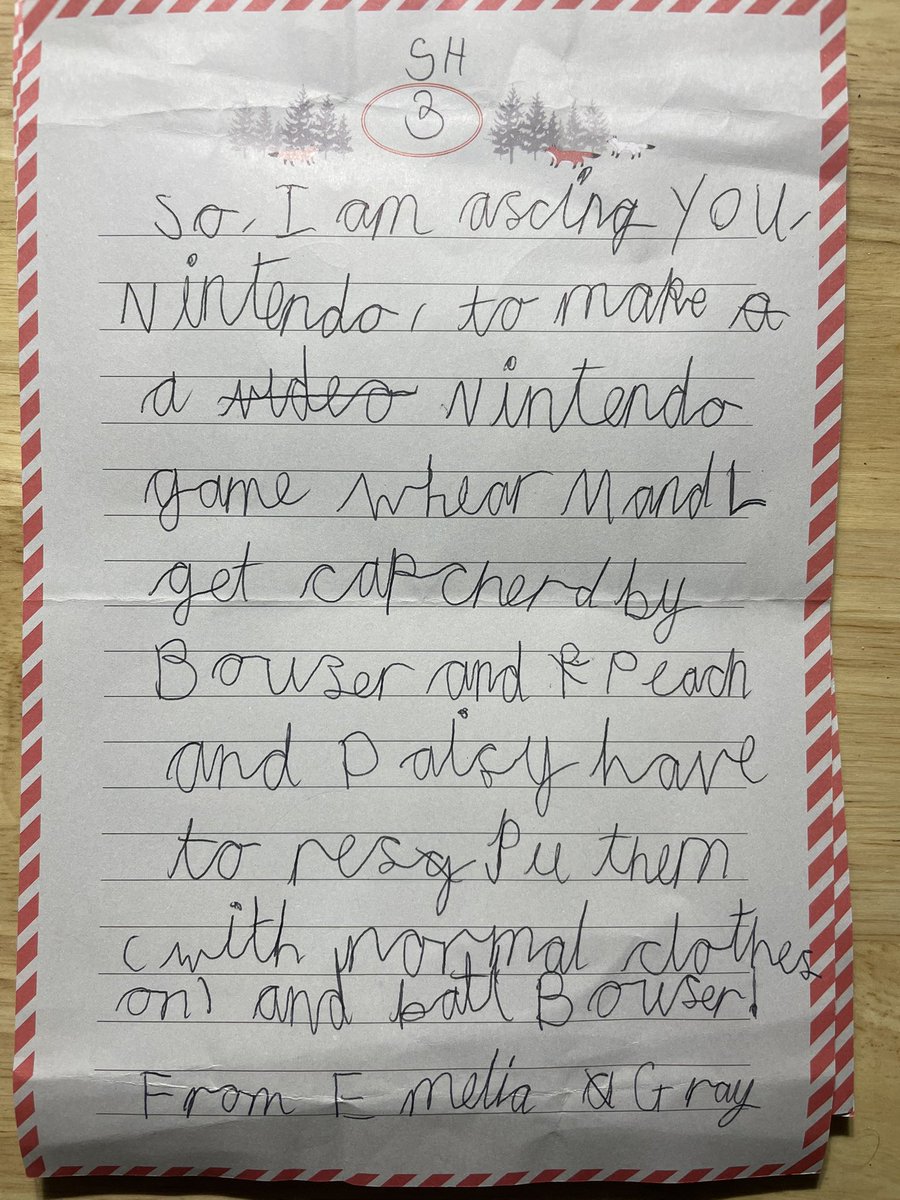 SH
3
So, I am ascing YOU,
Nintendo, to make a
a video Nintendo
game whear M and L
get capcherd by
Bowser and P Peach
and Daisy have
to resqPu them
(with normal clothes
on) and batl Bowser!
From Emelia Gray